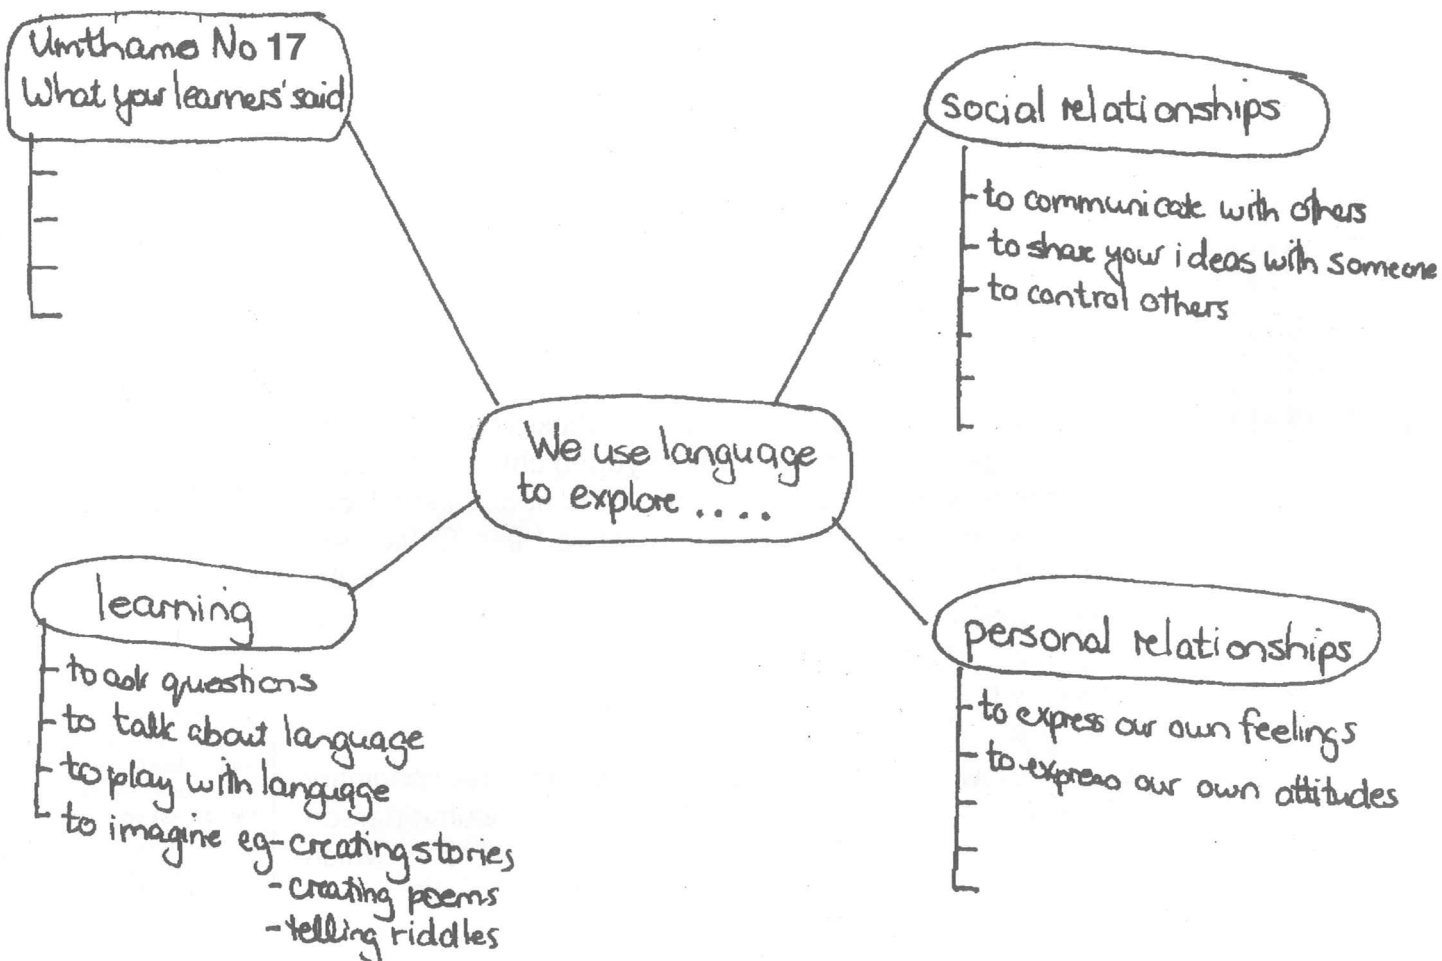 Umthamo No 17
What your learners' said
social relationships
- to communicate with others
- to share your ideas with someone
- to control others
We use language
to explore ....
learning
- to ask questions
- to talk about language
- to play with language
- to imagine eg - creating stories
- creating poems
- telling riddles
personal relationships
- to express our own feelings
- to express our own attitudes